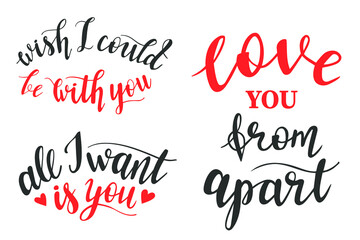 wish I could
be with you
all I want
is you
love
YOU
from
apart